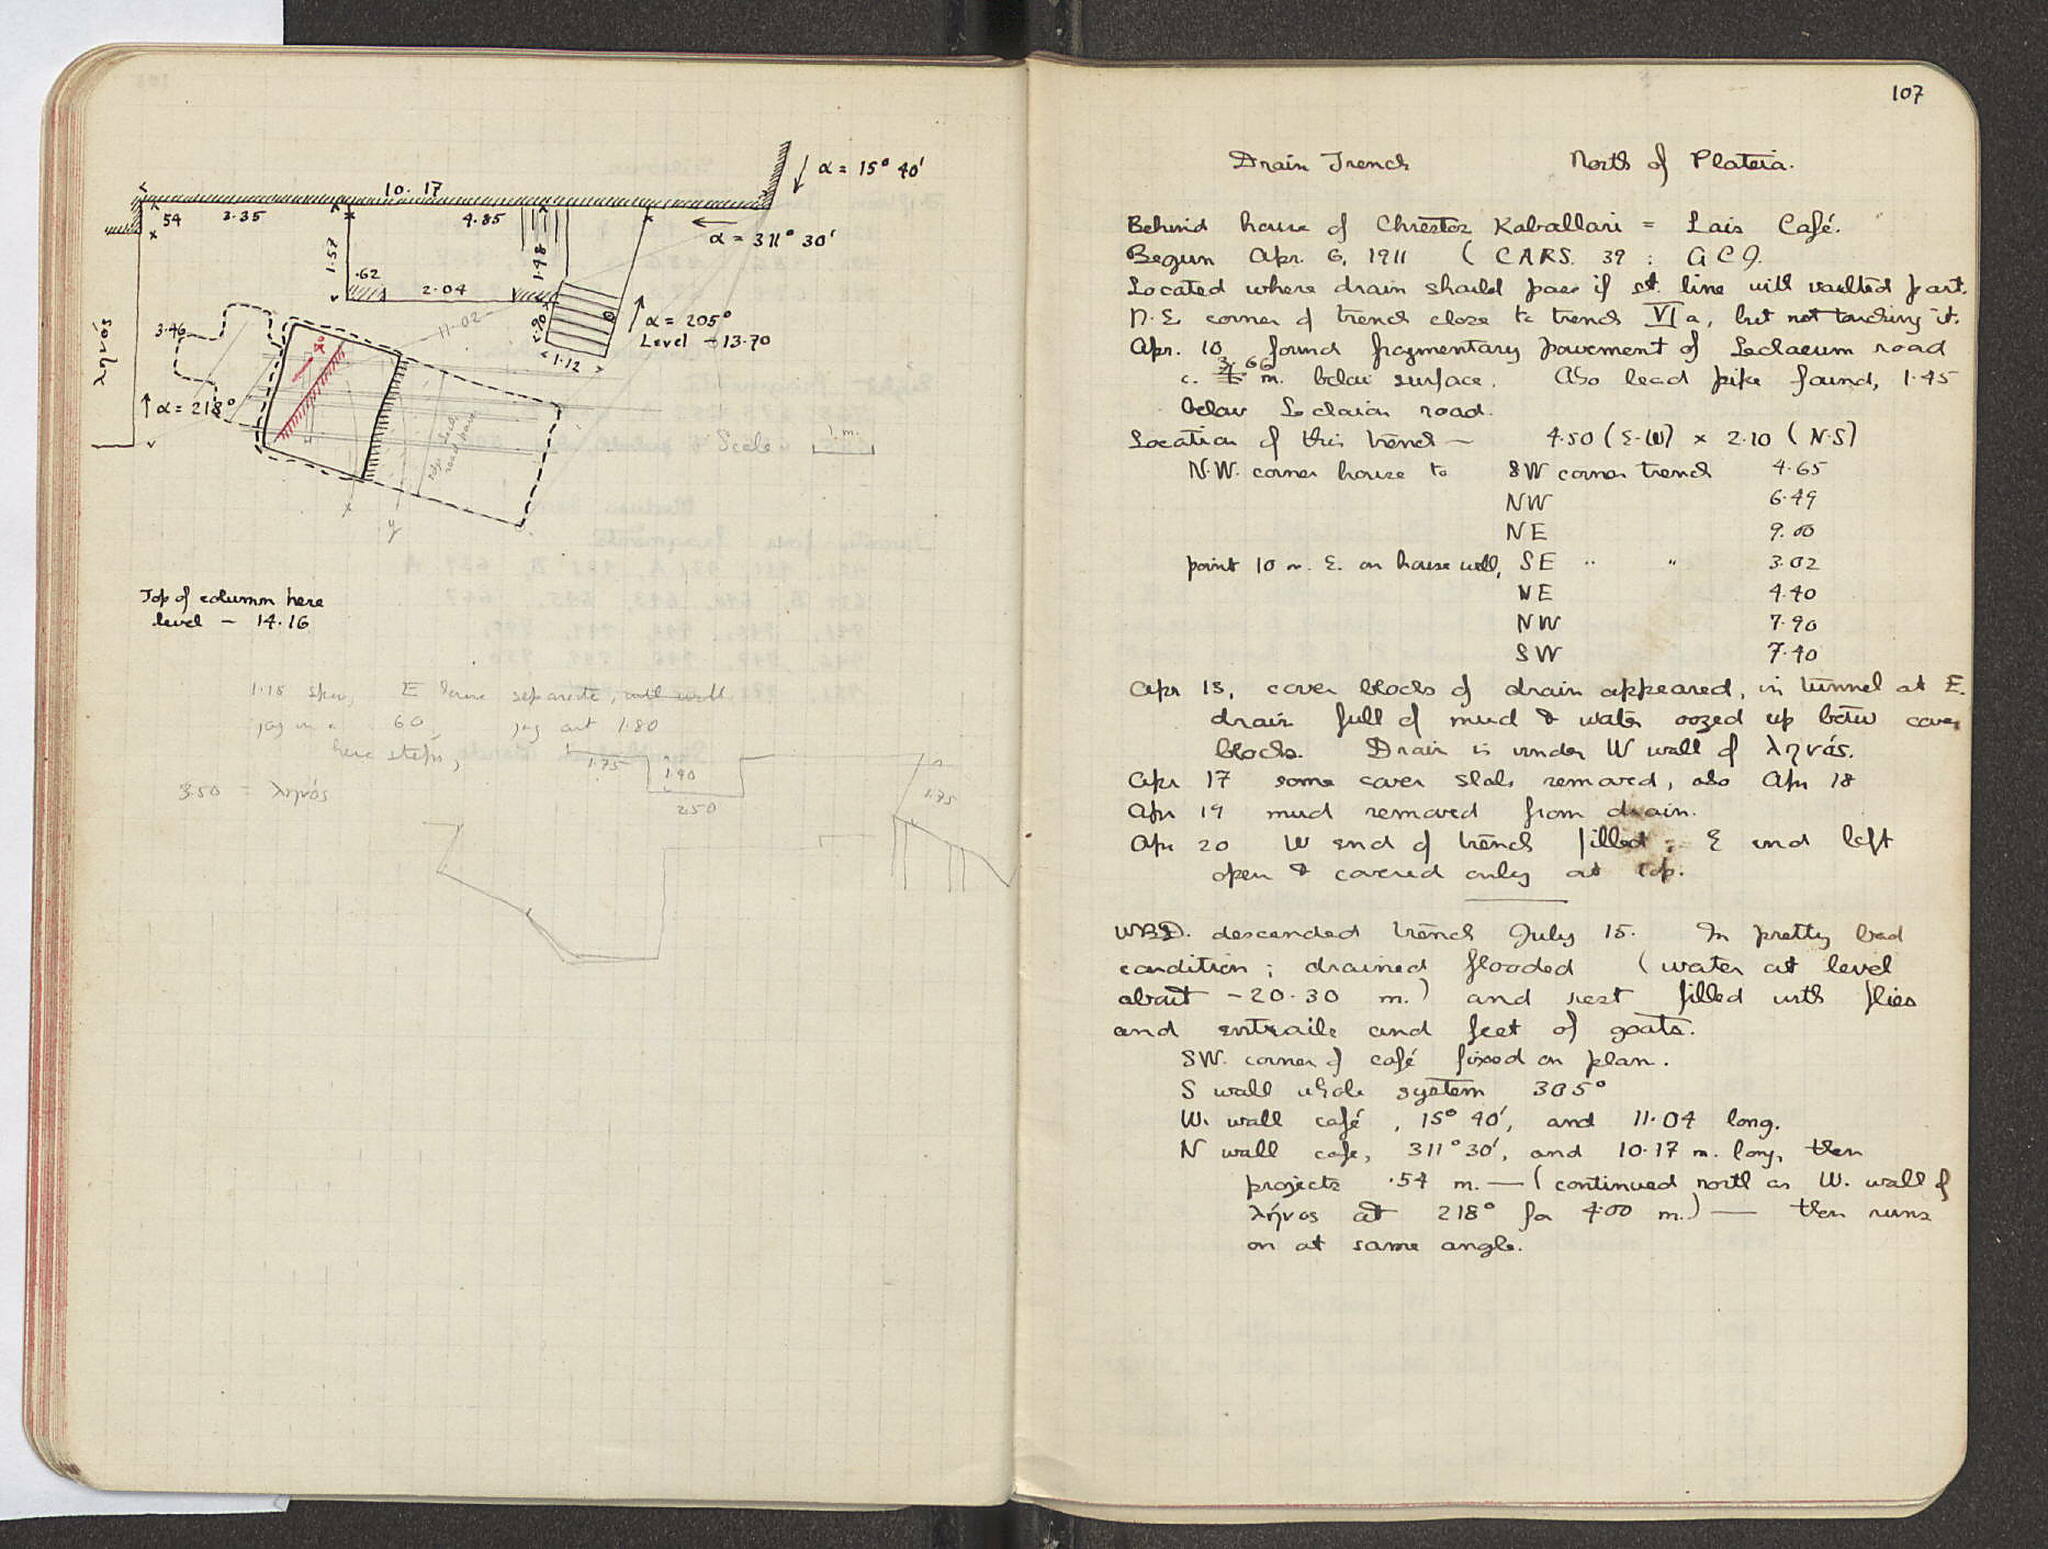 α = 15° 40'
10.17
54
3.35
4.85
α = 311° 30'
1.57
1.98
.62
2.04
11.02
3.46
.90
1.12
α = 205°
Level -13.70
ληνός
α = 218°
Scale
1 m.
x
y
Top of column here
level - 14.16
E
separate,
60,
jog out 1.80
here steps,
1.75
1.90
2.50
1.75
3.50 = ληνός
107
Drain Trench North of Plateia.
Behind house of Chrestos Kaballari = Lais Café.
Begun Apr. 6, 1911 ( CARS. 39 :
Located where drain should pass if st. line with vaulted part.
N.E corner of trench close to trench VI a, but not touching it.
Apr. 10 found fragmentary pavement of Lechaeum road
c. 3.66 m. below surface. Also lead pipe found, 1.45
below Lechaion road.
Location of this trench — 4.50 (E-W) x 2.10 (N-S)
N.W. corner house to SW corner trench 4.65
NW 6.49
NE 9.00
point 10 m. E. on house wall, SE " " 3.02
NE 4.40
NW 7.90
SW 7.40
Apr 15, cover blocks of drain appeared, in tunnel at E.
drain full of mud & water oozed up betw cover
blocks. Drain is under W wall of ληνός.
Apr 17 some cover slabs removed, also Apr 18
Apr 19 mud removed from drain.
Apr 20 W end of trench filled; E end left
open & covered only at top.
WBD. descended trench July 15. In pretty bad
condition; drained flooded (water at level
about -20.30 m.) and rest filled with flies
and entrails and feet of goats.
SW. corner of café fixed on plan.
S wall whole system 305°
W. wall café, 15° 40', and 11.04 long.
N wall cafe, 311° 30', and 10.17 m. long, then
projects .54 m. — (continued north as W. wall of
λήνος at 218° for 4.00 m.) — then runs
on at same angle.